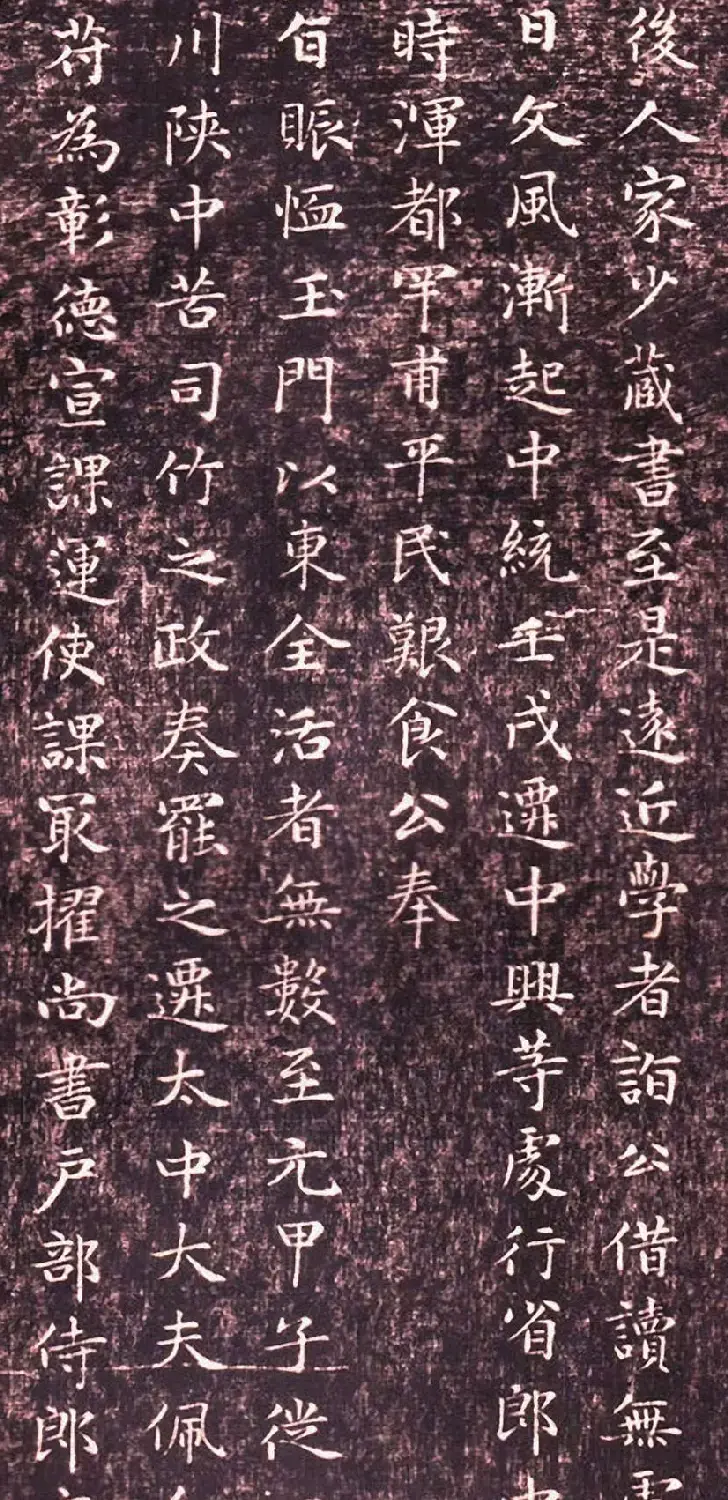 後人家少藏書至是遠近學者詣公借讀無
日文風漸起中統壬戌遷中興等處行省郎
時渾都罕甫平民艱食公奉
旨賑恤玉門以東全活者無數至元甲子從
川陝中苦司竹之政奏罷之遷太中大夫佩
符為彰德宣課運使課最擢尚書戶部侍郎